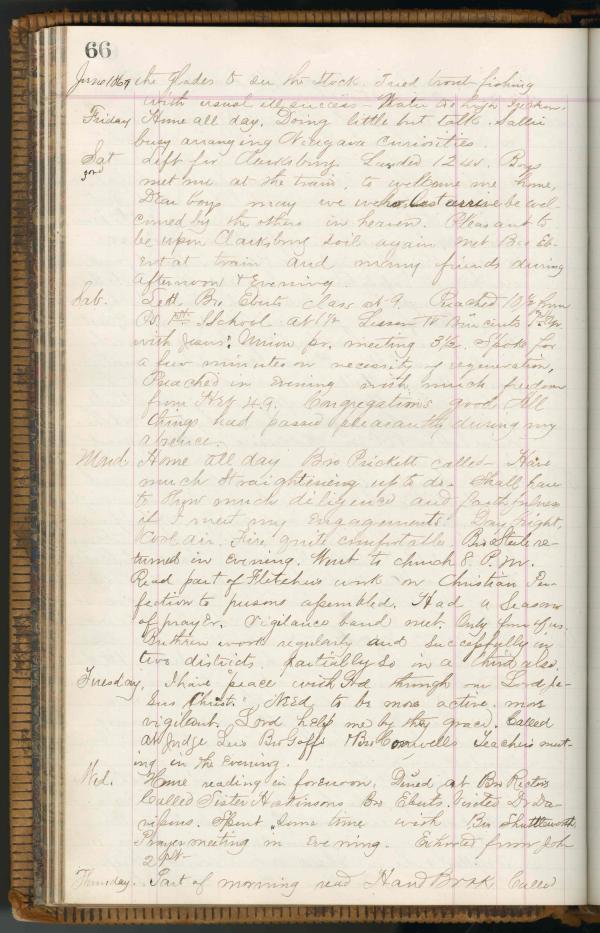 66
June 1869 the glades to see the stock. Tried trout fishing
with usual ill success - Water too high
Friday Home all day. Doing little but talk. Sallie
busy arranging Niagara curiosities.
Sat Left for Clarksburg. Landed 12 Boys
met me at the train, to welcome me home,
Dear boys may we who last arrive be wel-
comed by the others in heaven. Pleasant to
be upon Clarksburg soil again. Met Bro Eb-
ert at train and many friends during
afternoon & Evening.
Sab. Led Bro Eberts class at 9. Preached 10½ from
Ps. School at Lesson
with Jesus. Union pr. meeting 3½. Spoke for
a few minutes on necessity of regeneration,
Preached in evening with much freedom
from 4.9. Congregations good. All
things had passed pleasantly during my
absence.
Mond. Home all day Bro Prickett called - Have
much straightening up to do. Shall have
to show much diligence and faithfulness
if I meet my engagements. Day bright,
Cool air. Fire quite comfortable. Bro Steele re-
turned in evening. Went to church 8. P.M.
Read part of Fletchers work on Christian Per-
fection to persons assembled. Had a season
of prayer. Vigilance band met. Only four of us.
Brethren work regularly and successfully in
two districts, partially so in a third also.
Tuesday, I have peace with God through our Lord Je-
sus Christ. Need to be more active. more
vigilant. Lord help me by thy grace. Called
at Judge Bro Goffs & Bro Cornwells Teachers meet-
ing in the Evening.
Wed. Home reading in forenoon, Dined at Bro Rectors
Called Sister Hatkinsons, Bro Eberts. Visited Dr Da-
vissons. Spent some time with Bro Shuttleworth
Prayer meeting in Evening. Exhorted from Job
Thursday. Part of morning read Hand Book Called